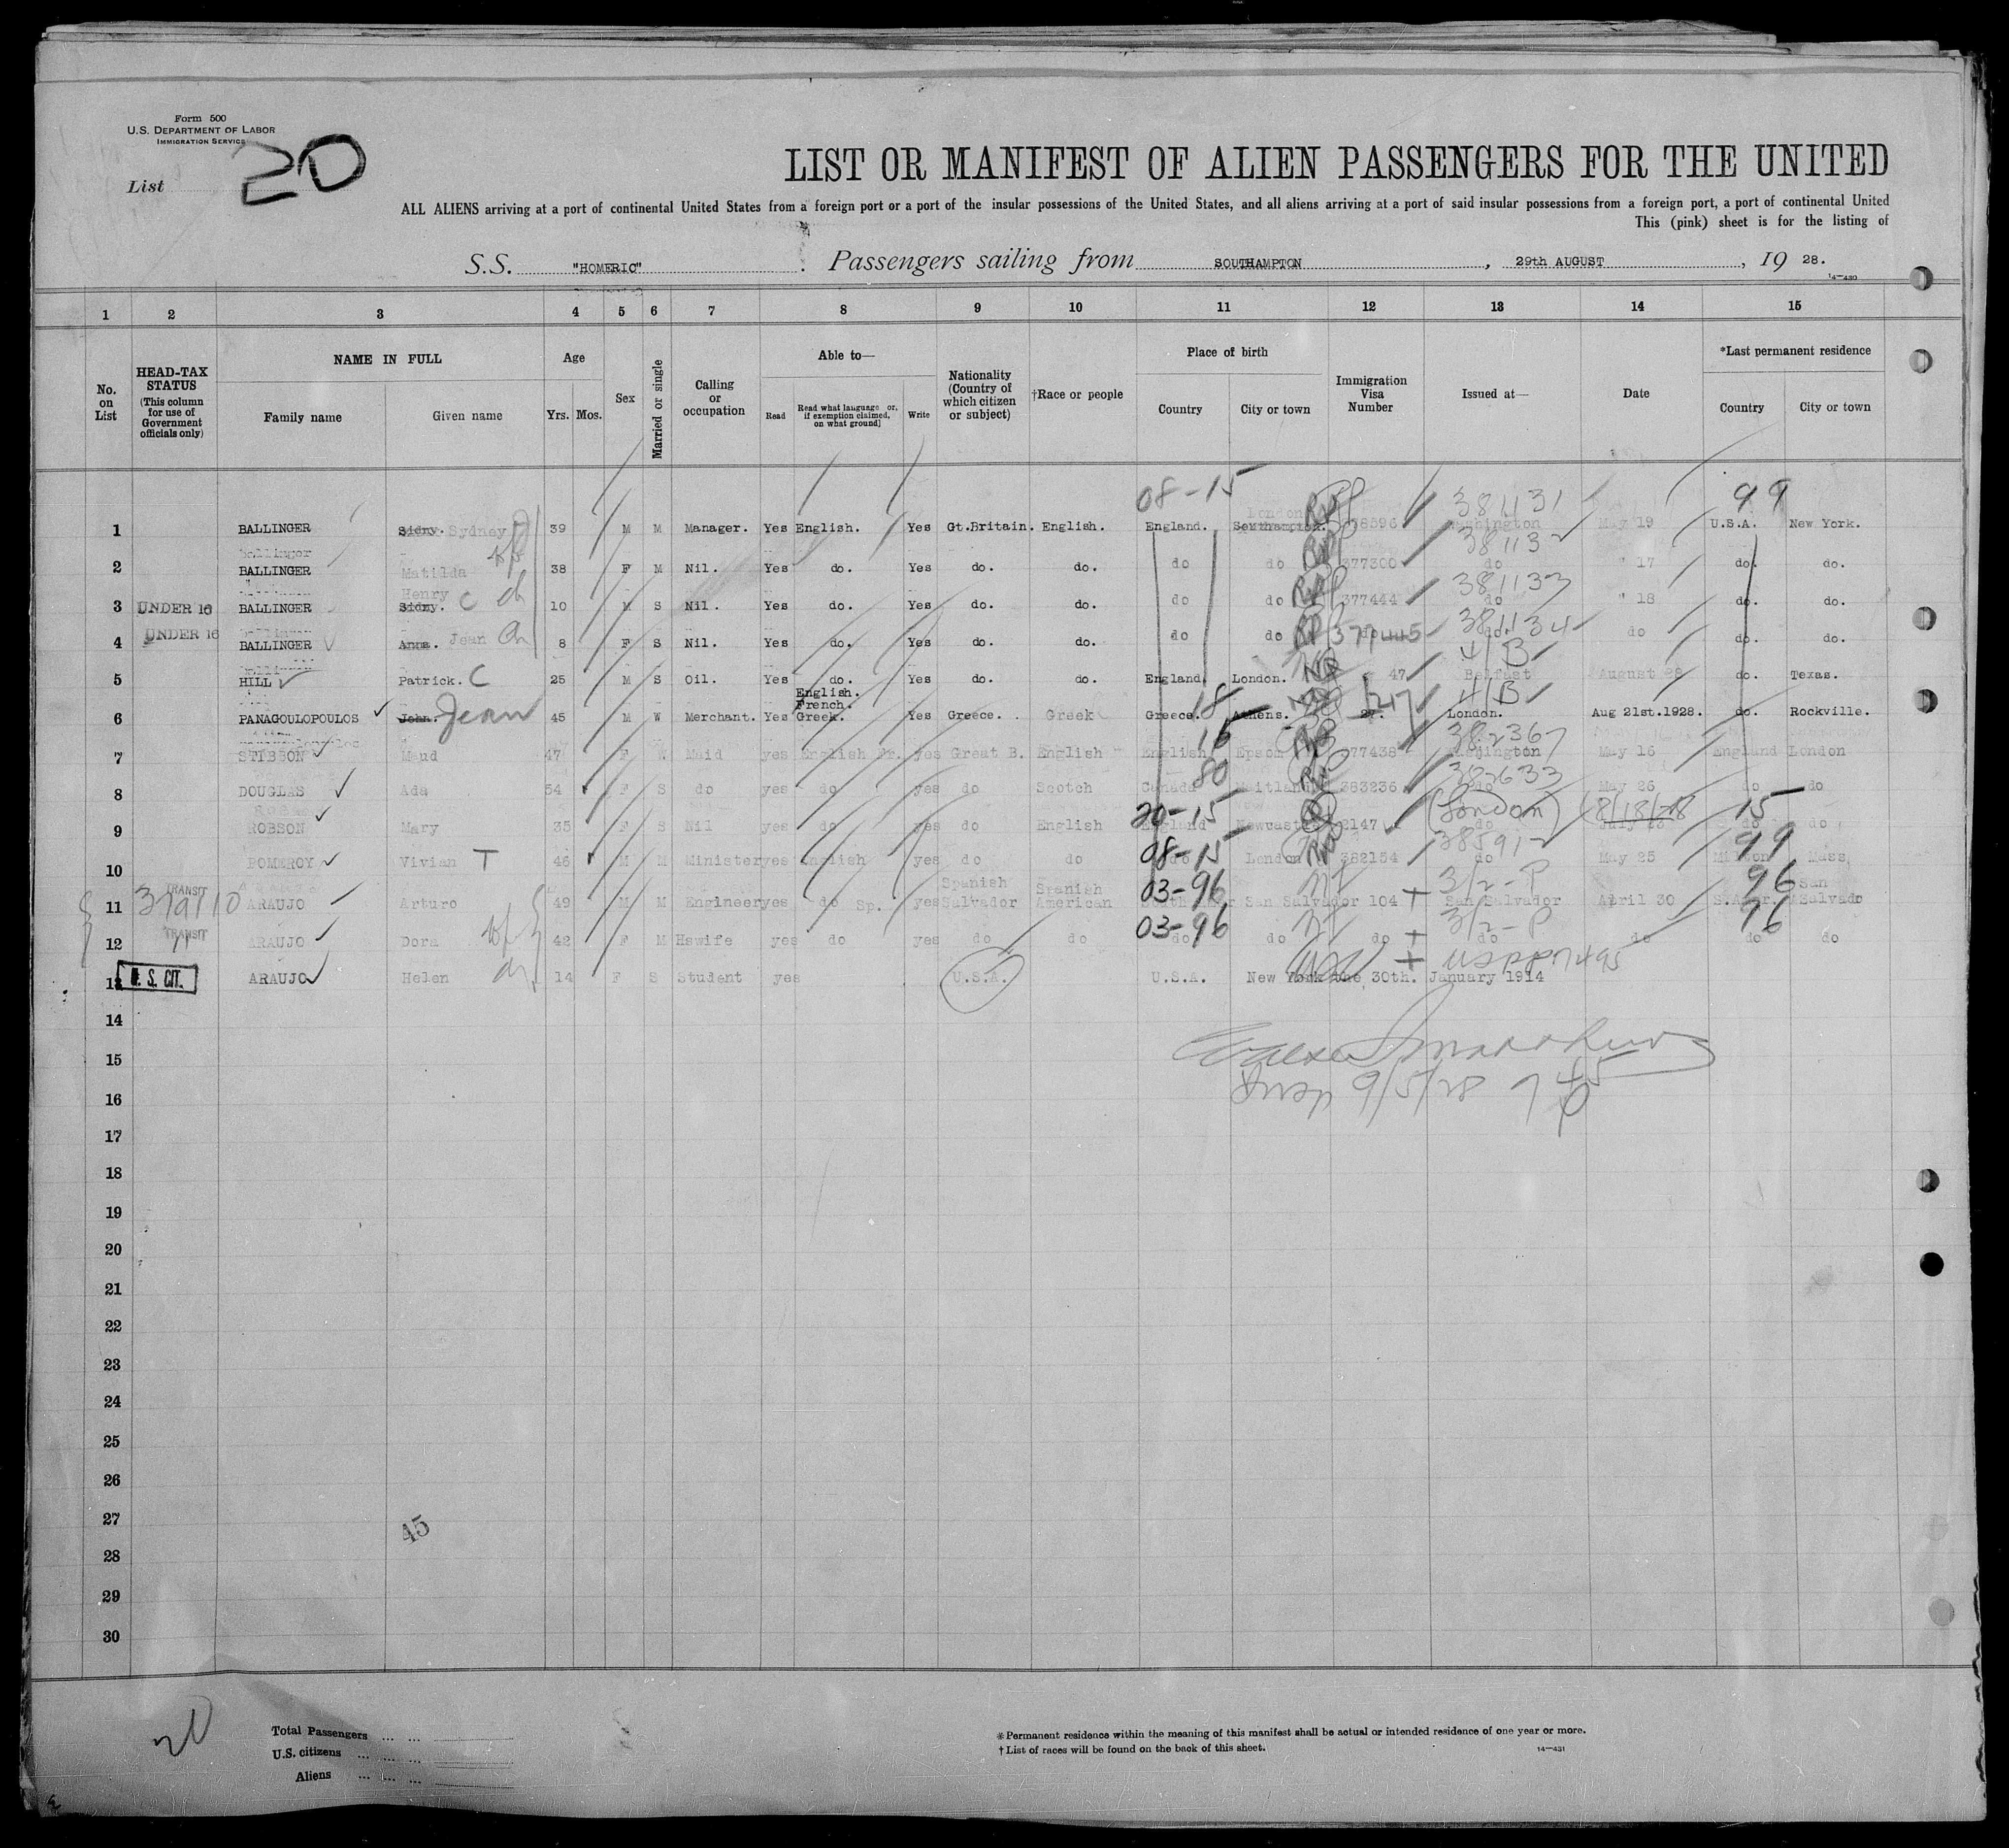 Form 500
U.S. DEPARTMENT OF LABOR
IMMIGRATION SERVICE
List 20
LIST OR MANIFEST OF ALIEN PASSENGERS FOR THE UNITED
ALL ALIENS arriving at a port of continental United States from a foreign port or a port of the insular possessions of the United States, and all aliens arriving at a port of said insular possessions from a foreign port, a port of continental United
This (pink) sheet is for the listing of
S.S. "HOMERIC" Passengers sailing from SOUTHAMPTON, 29th AUGUST, 19 28.
14-430
1 2 3 4 5 6 7 8 9 10 11 12 13 14 15
No. on List
HEAD-TAX STATUS (This column for use of Government officials only)
NAME IN FULL Family name Given name
Age Yrs. Mos.
Sex
Married or single
Calling or occupation
Able to— Read Read what language or, if exemption claimed, on what ground] Write
Nationality (Country of which citizen or subject)
†Race or people
Place of birth Country City or town
Immigration Visa Number
Issued at—
Date
*Last permanent residence Country City or town
08-15 London 381131 99
1 BALLINGER Sidny. Sydney 39 M M Manager. Yes English. Yes Gt.Britain. English. England. Southampton. Washington May 19 U.S.A. New York.
381132
2 BALLINGER Matilda wf 38 F M Nil. Yes do. Yes do. do. do do 377300 do " 17 do. do.
Henry 381133
3 UNDER 16 BALLINGER Sidny. C ch 10 M S Nil. Yes do. Yes do. do. do do 377444 do " 18 do. do.
381134
4 UNDER 16 BALLINGER Anna. Jean Ch 8 F S Nil. Yes do. Yes do. do. do do 377445 do. do do. do.
4/B
5 HILL Patrick. C 25 M S Oil. Yes do. Yes do. do. England. London. 47 Belfast August 28 do. Texas.
English. French. 18 247 4/B
6 PANAGOULOPOULOS John. Jean 45 M W Merchant. Yes Greek. Yes Greece. Greek Greece. Athens. 27. London. Aug 21st.1928. do. Rockville.
15 382367
7 STIBBON Maud 47 F W Maid yes English Fr. yes Great B. English English Epsom 377438 May 16 England London
80 382633
8 DOUGLAS Ada 54 F S do yes do yes do Scotch Canada Maitland 383236 do May 26 do do
20-15 (London) 8/18/28 15
9 ROBSON Mary 35 F S Nil yes do yes do English England Newcastle 2147 do July 23 do do
08-15 385912 99
10 POMEROY Vivian T 46 M M Minister yes English yes do do do London 382154 do May 25 Milton Mass
TRANSIT Spanish Spanish 03-96 NI 3/2-P 96 San
11 ARAUJO Arturo 49 M M Engineer yes do Sp. yes Salvador American South Amer San Salvador 104 San Salvador April 30 S.Amer. Salvado
TRANSIT 03-96 NI 3/2-P 96
12 11 ARAUJO Dora wf 42 F M Hswife yes do yes do do do do do do do do do
13 U. S. CIT. ARAUJO Helen 14 F S Student yes U.S.A. U.S.A. New York 30th. January 1914
14
15
Insp 9/5/28
16
17
18
19
20
21
22
23
24
25
26
27
45
28
29
30
20
Total Passengers ... ...
U.S. citizens ... ... ...
Aliens ... ... ...
* Permanent residence within the meaning of this manifest shall be actual or intended residence of one year or more.
† List of races will be found on the back of this sheet.
14-431